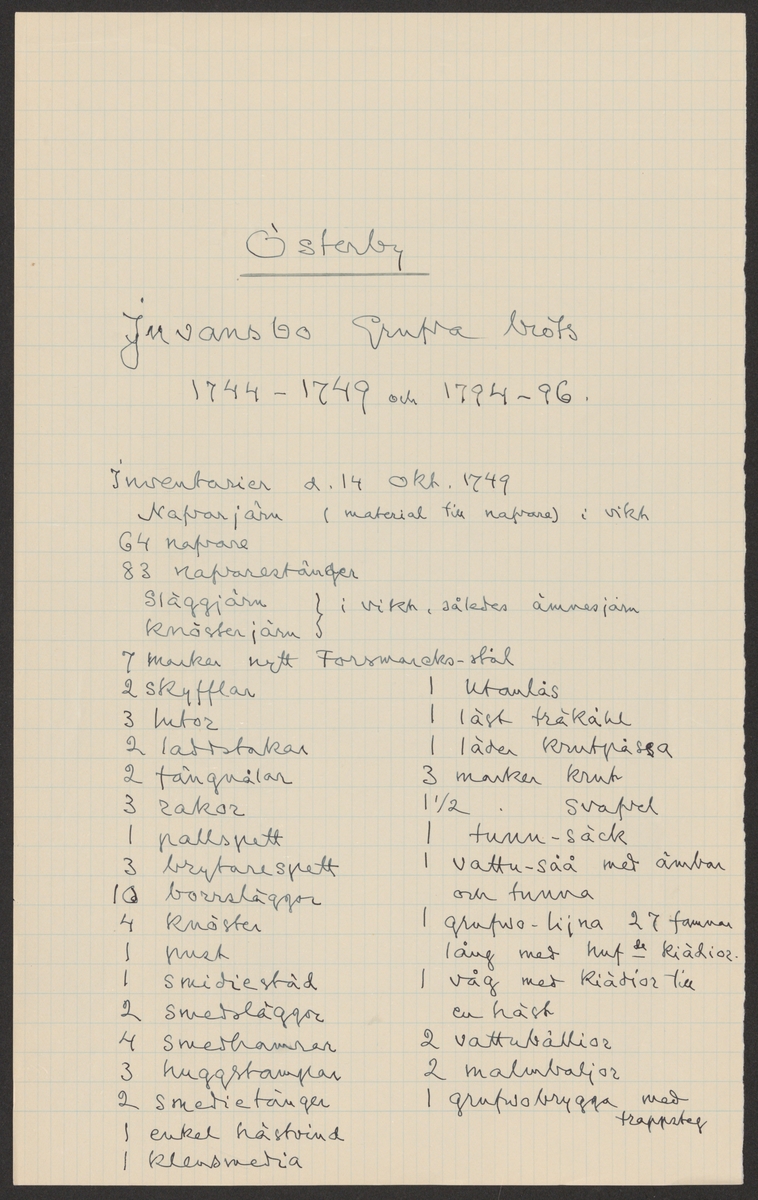 Österby
Invansbo Grufva bröts
1744 – 1749 och 1794 – 96.
Inventarier d. 14 Okt. 1749
Nafvarjärn (material till nafvare) i vikt
64 nafvare
83 nafvarestänger
Släggjärn } i vikt, således ämnesjärn
Knösterjärn }
7 marker nytt Forsmarcks-stål
2 skyfflar
3 hutor
2 laddstakar
2 fängnålar
3 rakor
1 pallspett
3 brytarespett
10 borrsläggor
4 knöster
1 pust
1 smidiestäd
2 smedsläggor
4 smedhamrar
3 huggstamplar
2 smedietänger
1 enkel hästvind
1 klensmedia
1 utanlås
1 låst träkåhl
1 läder krutpåssa
3 marker krut
1 1/2 . svafvel
1 tunn-säck
1 vattu-såå med ämbar
och tunna
1 grufwo-lijna 27 famnar
lång med huf de kiädior.
1 våg med kiädior till
en häst
2 vattubållior
2 malmbaljor
1 grufwobrygga med
trappsteg